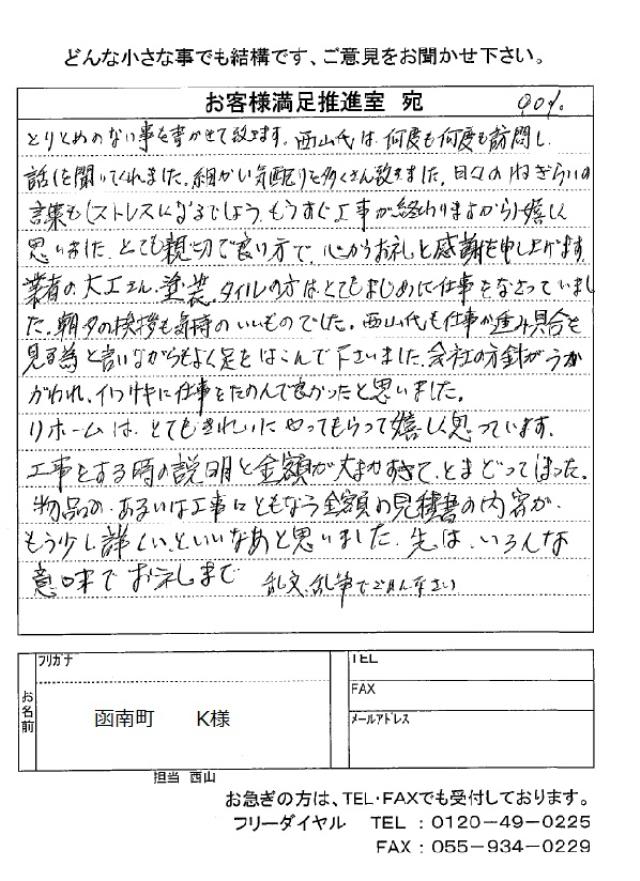 どんな小さな事でも結構です、ご意見をお聞かせ下さい。
お客様満足推進室 宛
とりとめのない事を書かせて頂きます。西山氏は、何度も何度も訪問し、
話しを聞いてくれました。細かい気配りを多くさん頂きました。日々のねぎらいの
言葉も(ストレスになるでしょう、もうすぐ工事が終わりますから)嬉しく
思いました。とても親切で良い方で、心からお礼と感謝を申し上げます。
業者の大工さん、塗装、タイルの方はとてもまじめに仕事をなさっていまし
た。朝夕の挨拶も気持のいいものでした。西山氏も仕事が進み具合を
見る為と言いながらもよく足をはこんで下さいました。会社の方針がうか
がわれ、イワサキに仕事をたのんで良かったと思いました。
リホームは、とてもきれいにやってもらって嬉しく思っています。
工事をする時の説明と金額が大まかすぎて、とまどってしまった。
物品の、あるいは工事にともなう金額の見積書の内容が、
もう少し詳しい、といいなあと思いました。先は、いろんな
意味でお礼まで 乱文、乱筆でごめんなさい
フリガナ
お名前
函南町 K様
TEL
FAX
メールアドレス
担当 西山
お急ぎの方は、TEL・FAXでも受付しております。
フリーダイヤル TEL : 0120-49-0225
FAX : 055-934-0229